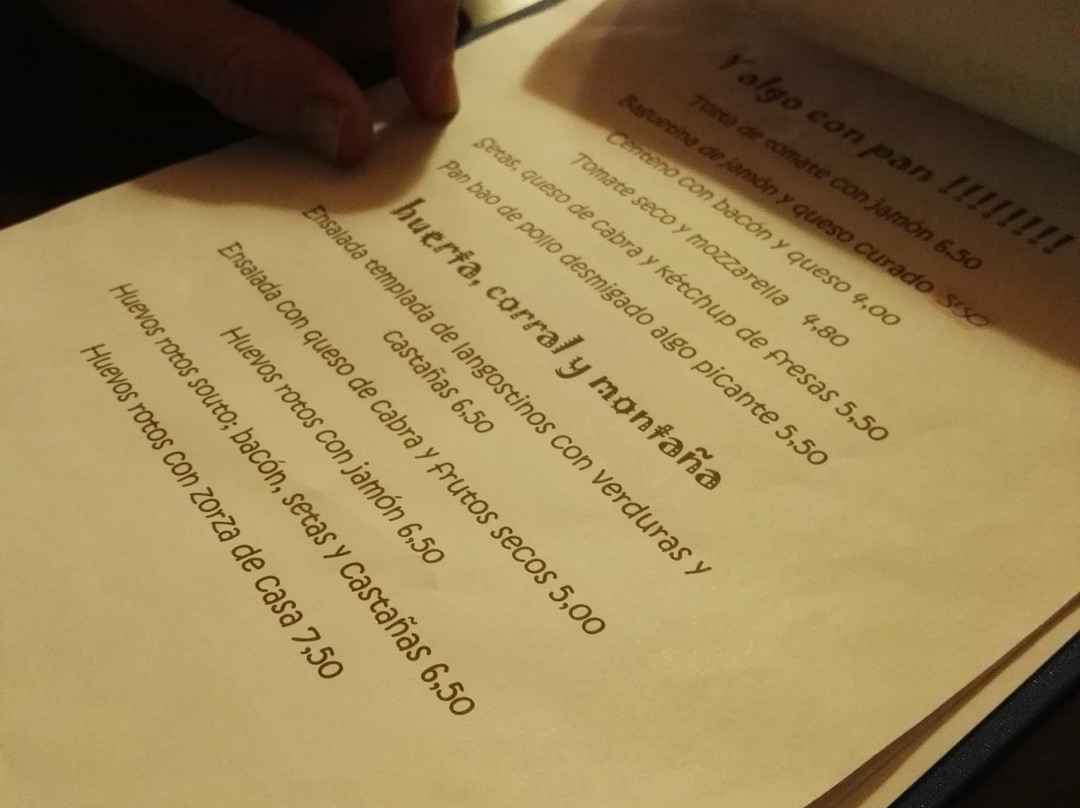 Y algo con pan !!!!!!!!
Tosta de tomate con jamón 6,50
Baguecina de jamón y queso curado 5'50
Centeno con bacón y queso 4,00
Tomate seco y mozzarella 4,80
Setas, queso de cabra y kétchup de fresas 5,50
Pan bao de pollo desmigado algo picante 5,50
huerta, corral y montaña
Ensalada templada de langostinos con verduras y
castañas 6,50
Ensalada con queso de cabra y frutos secos 5,00
Huevos rotos con jamón 6,50
Huevos rotos souto; bacón, setas y castañas 6,50
Huevos rotos con zorza de casa 7,50